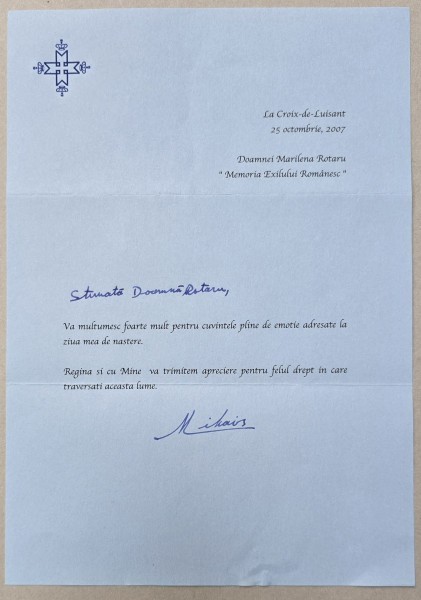 La Croix-de-Luisant
25 octombrie, 2007
Doamnei Marilena Rotaru
" Memoria Exilului Românesc "
Stimată Doamnă Rotaru,
Va multumesc foarte mult pentru cuvintele pline de emotie adresate la
ziua mea de nastere.
Regina si cu Mine va trimitem apreciere pentru felul drept in care
traversati aceasta lume.
Mihai